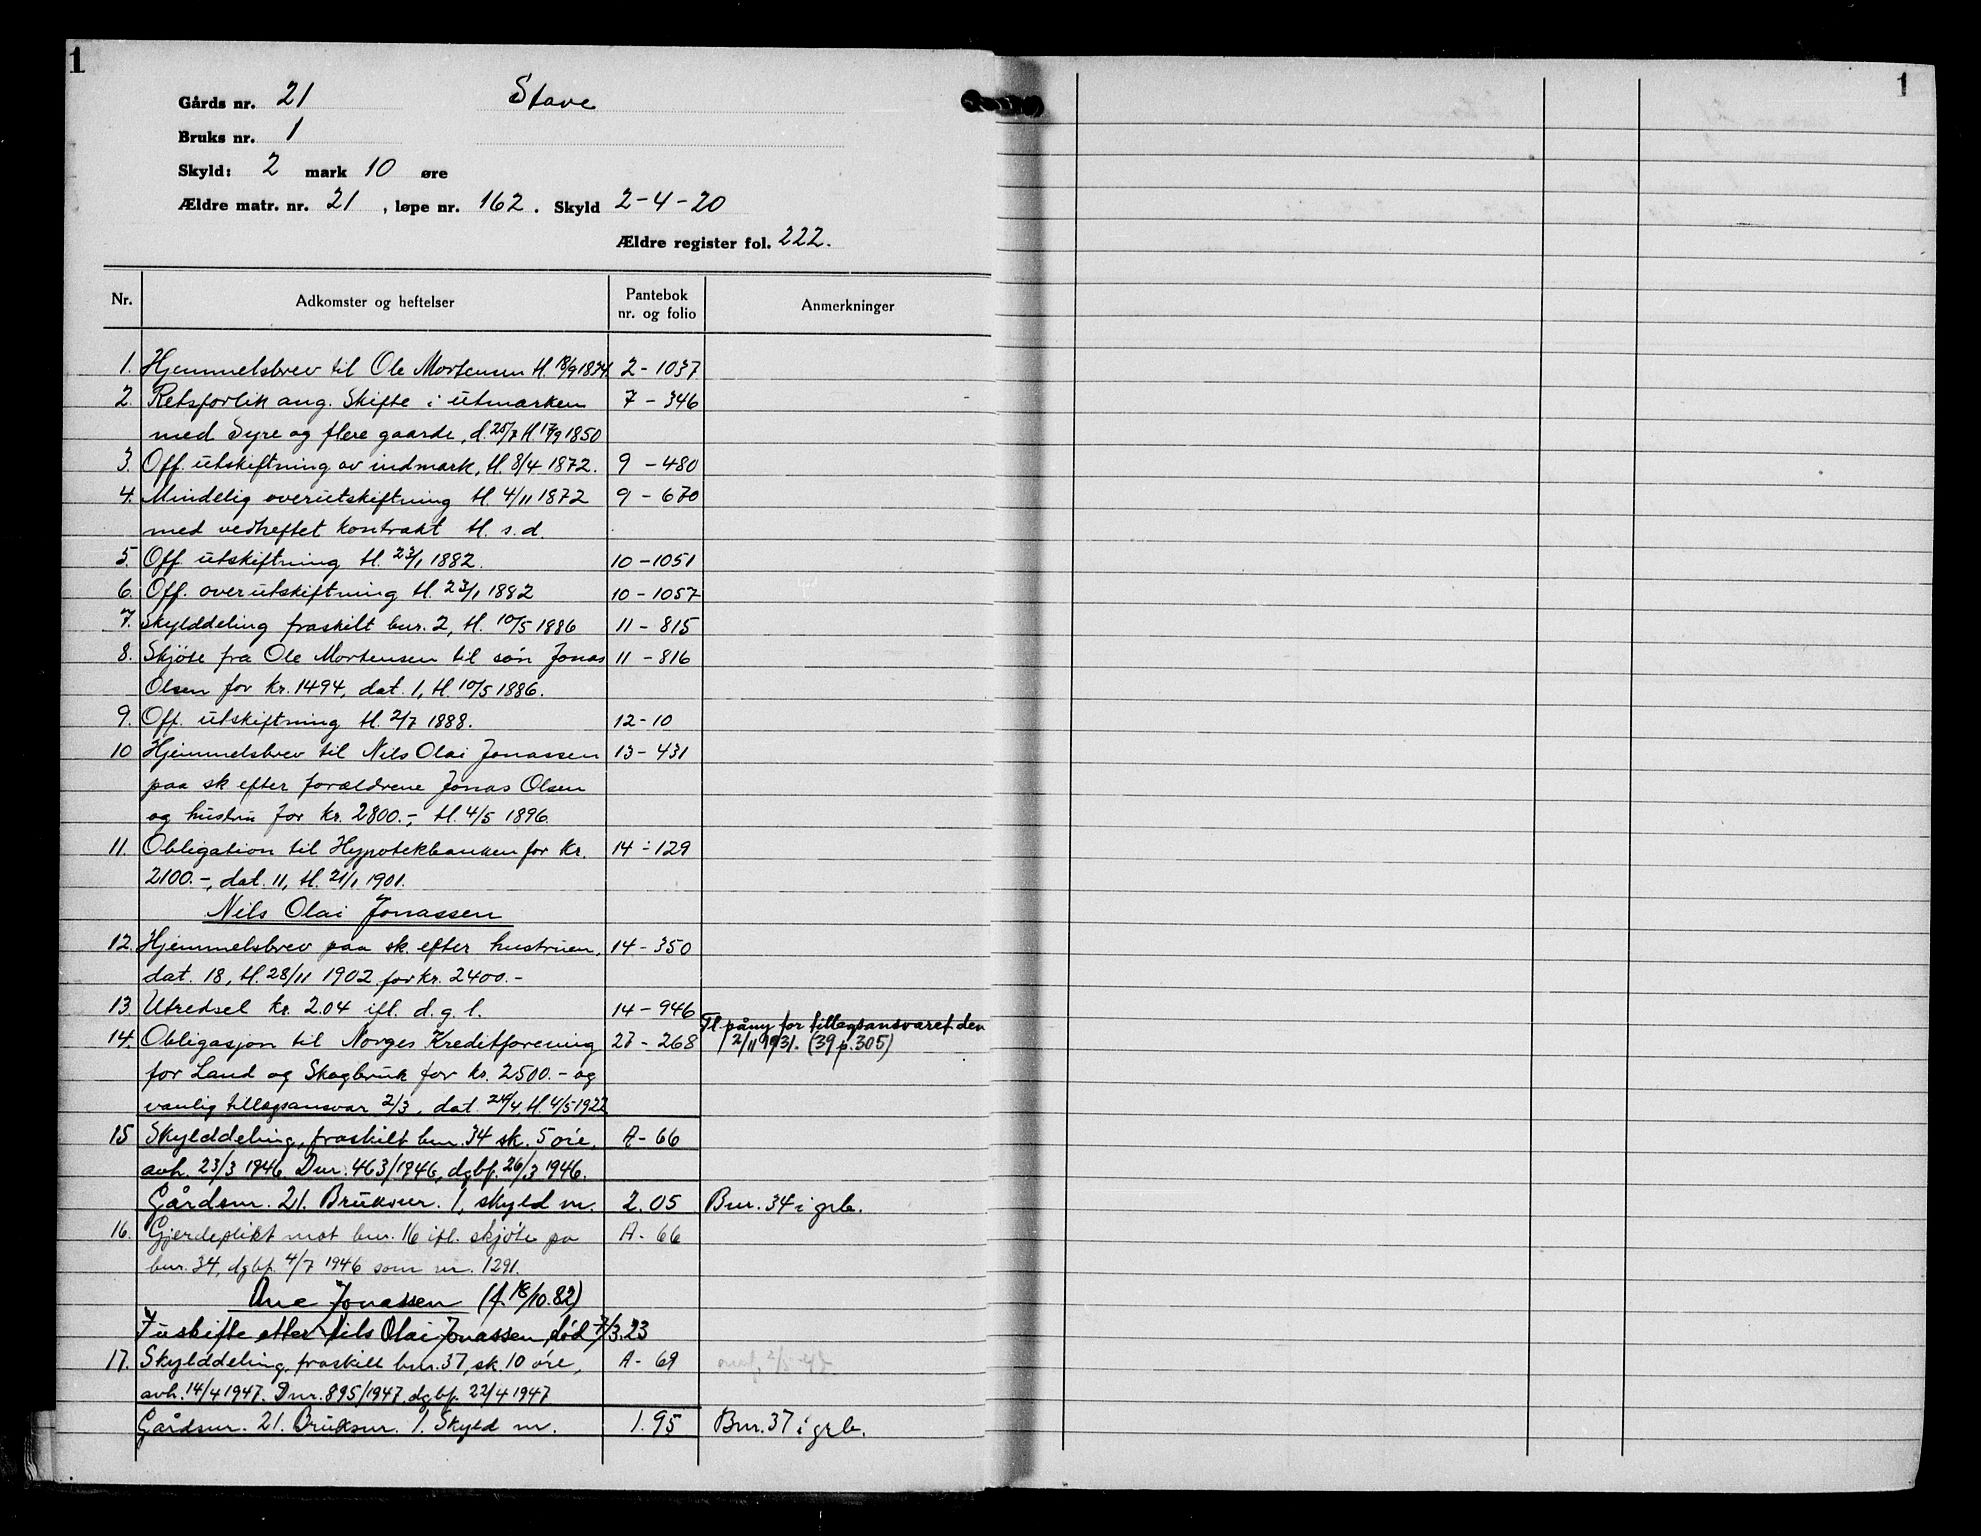 1
Gårds nr. 21 Stave
Bruks nr. 1
Skyld: 2 mark 10 øre
Ældre matr. nr. 21, løpe nr. 162. Skyld 2-4-20
Ældre register fol. 222.
Nr. Adkomster og heftelser Pantebok nr. og folio Anmerkninger
1. Hjemmelsbrev til Ole Mortensen tl. 18/9 1834. 2-1037
2. Retsforlik ang. Skifte i utmarken 7-346
med Syre og flere gaarde, d. 25/7 tl. 17/9 1850
3. Off. utskiftning av indmark, tl. 8/4 1872. 9-480
4. Mindelig overutskiftning tl. 4/11 1872 9-670
med vedheftet kontrakt tl. s.d.
5. Off utskiftning tl. 23/1 1882. 10-1051
6. Off. overutskiftning tl. 23/1 1882 10-1057
7. Skylddeling fraskilt bnr. 2, tl. 10/5 1886 11-815
8. Skjöte fra Ole Mortensen til sön Jonas 11-816
Olsen for kr. 1494, dat. 1, tl. 10/5 1886.
9. Off. utskiftning tl. 2/7 1888. 12-10
10 Hjemmelsbrev til Nils Olai Jonassen 13-431
paa sk efter forældrene Jonas Olsen
og hustru for kr. 2800.-, tl. 4/5 1896.
11. Obligation til Hypotekbanken for kr. 14-129
2100.-, dat. 11, tl. 21/1 1901.
Nils Olai Jonassen
12. Hjemmelsbrev paa sk. efter hustruen, 14-350
dat. 18, tl. 28/11 1902 for kr. 2400.-
13. Utredsel kr. 2.04 ifl. d.g.l. 14-946
Tl. påny for tillegsansvaret den
14. Obligasjon til Norges Kreditforening 27-268 2/11 1931. (39 p. 305)
for Land og Skogbruk for kr. 2500.- og
vanlig tillegsansvar 2/3, dat. 24/4, tl. 4/5 1922
15 Skylddeling, fraskilt bnr. 34 sk. 5 øre, A-66
avh. 23/3 1946. Dnr. 463/1946, dgbf. 26/3 1946.
Gårdsnr. 21. Bruksnr. 1, skyld m. 2.05 Bnr. 34 i grb.
16. Gjerdeplikt mot bnr. 16 ifl. skjöte på A-66
bnr. 34, dgbf. 4/7 1946 som nr. 1291.
Ane Jonassen (f. 18/10.82)
I uskifte etter Nils Olai Jonassen, död 7/3.23
17. Skylddeling, fraskilt bnr. 37, sk. 10 øre, A-69
avh. 14/4 1947. Dnr. 895/1947. dgbf. 22/4 1947
Gårdsnr. 21. Bruksnr. 1. Skyld m. 1.95 Bnr. 37 i grb.
1